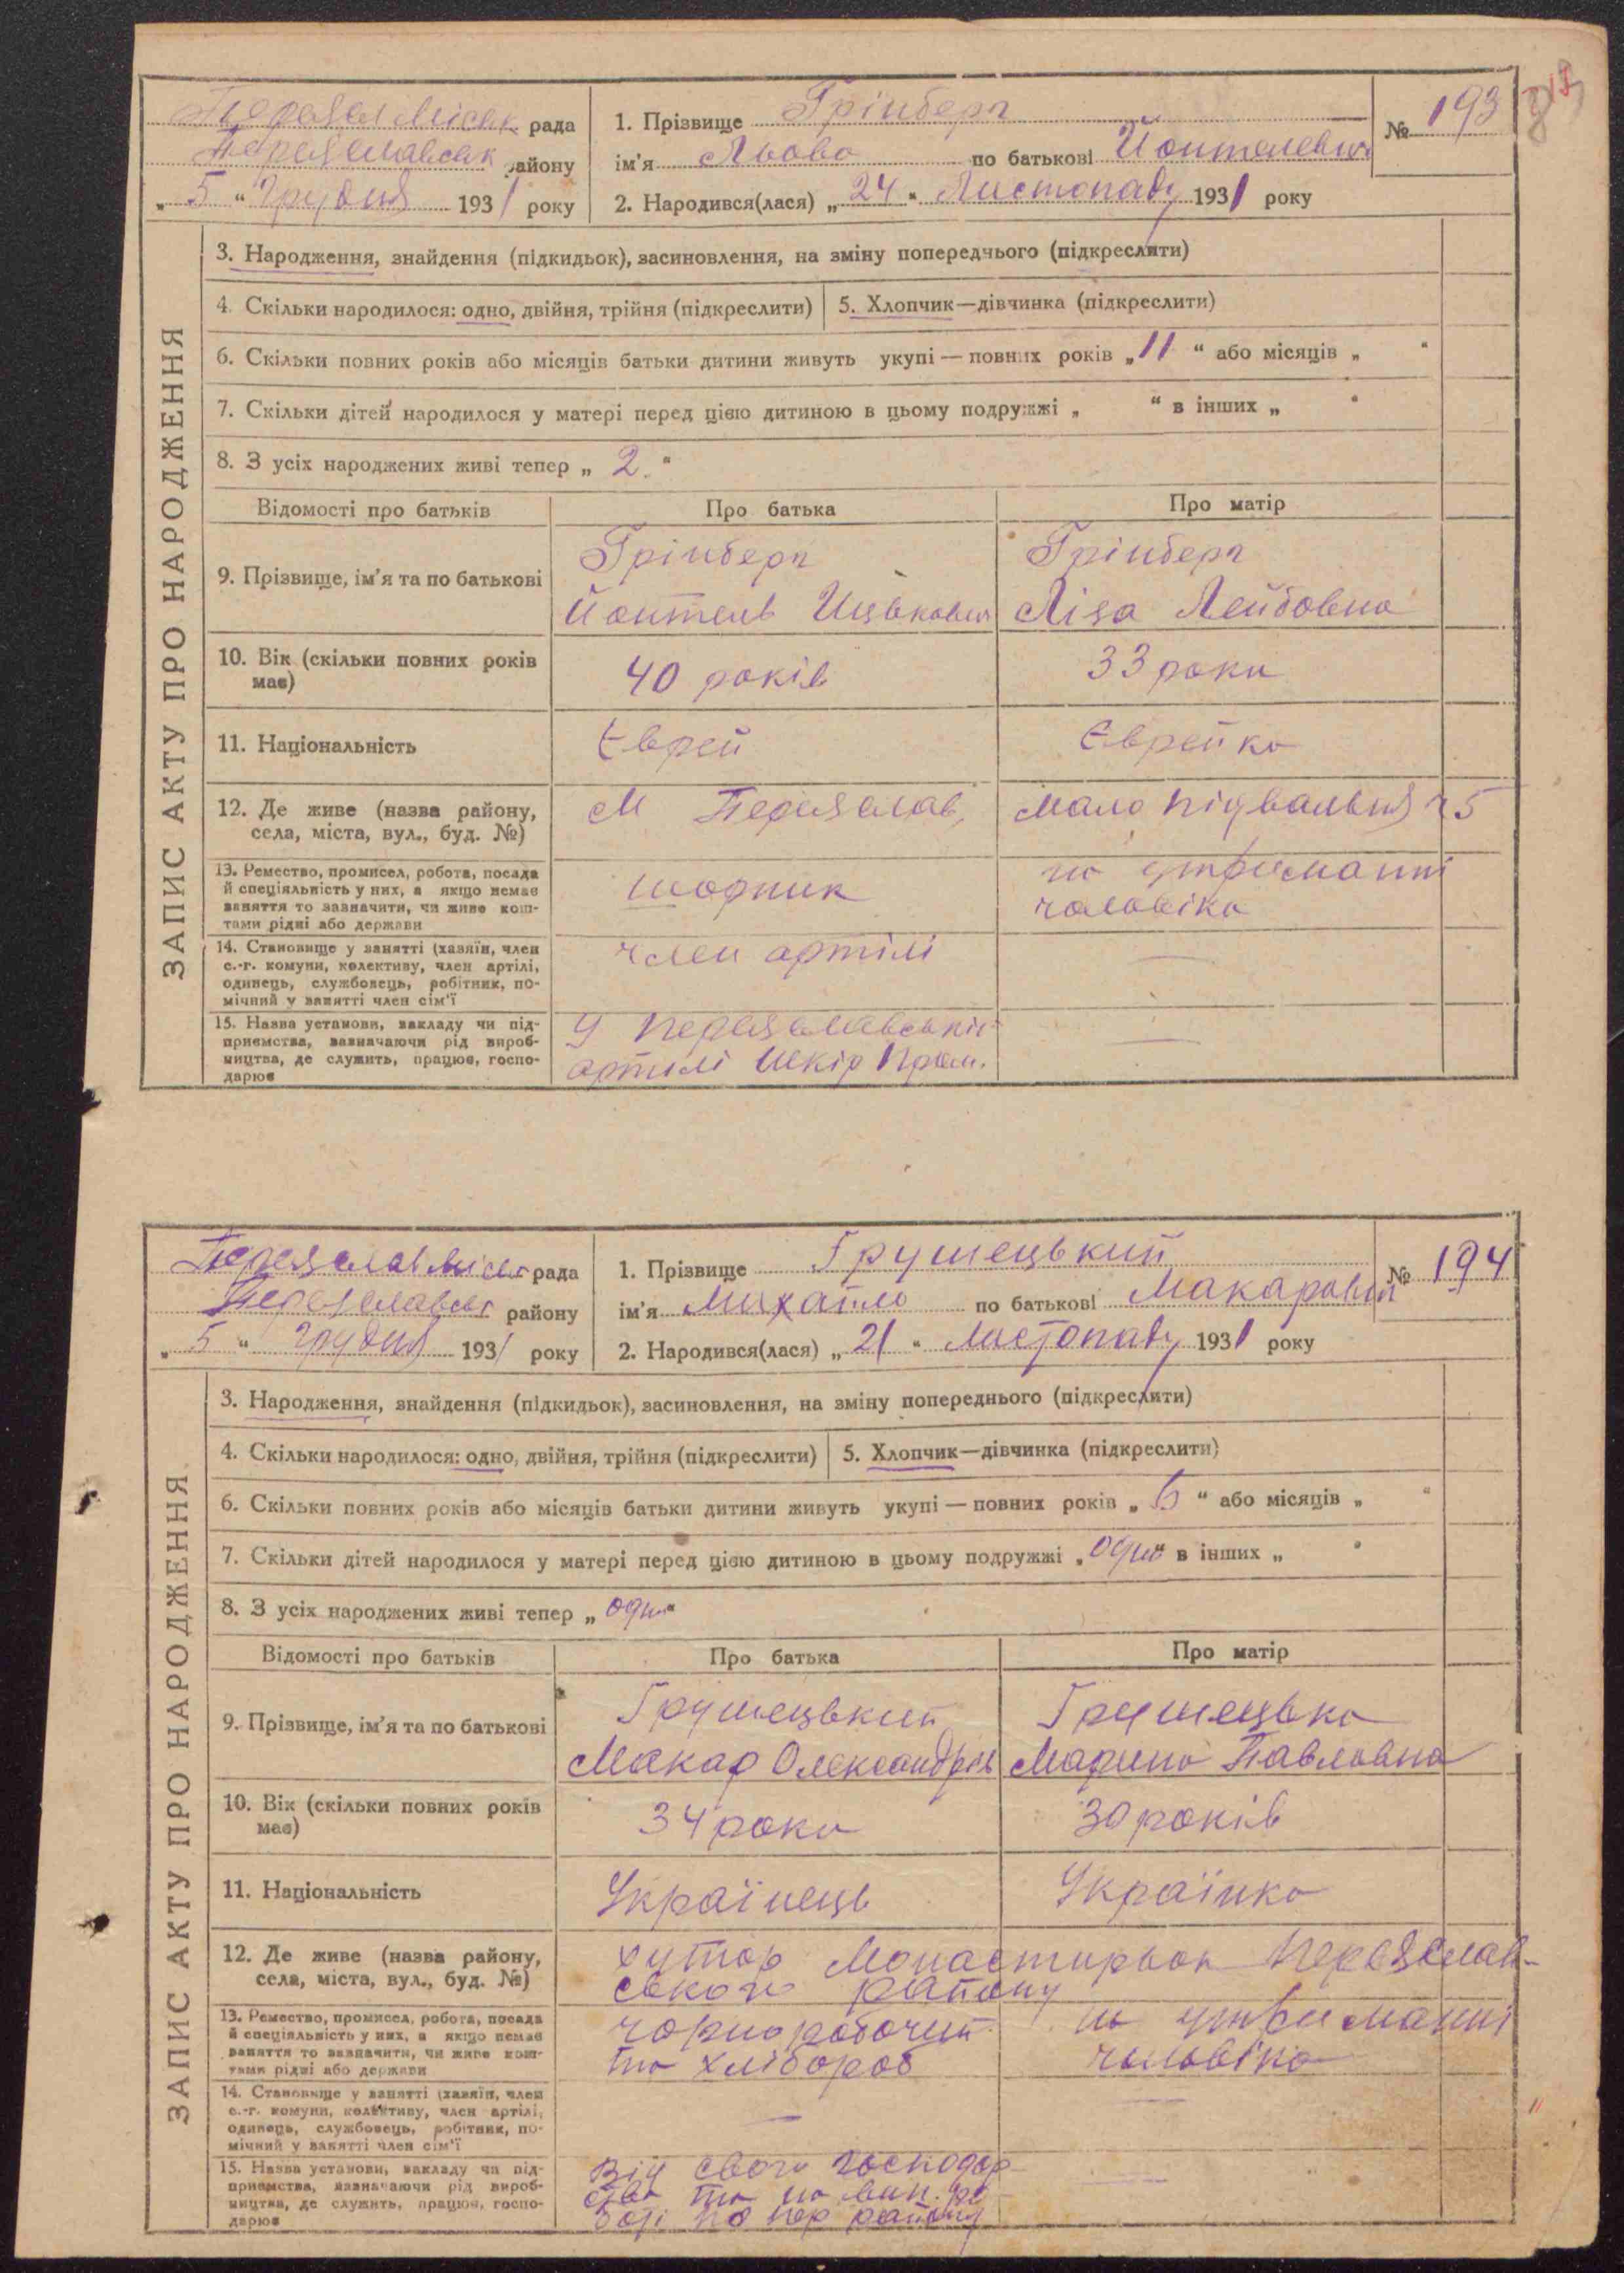 Переяслав Міськ рада
Переяславськ району
„ 5 “ Грудня 1931 року
1. Прізвище Грінберг
ім'я Льова по батькові Йонтелевич
2. Народився(лася) „ 24 “ Листопаду 1931 року
№ 193
ЗАПИС АКТУ ПРО НАРОДЖЕННЯ
3. Народження, знайдення (підкидьок), засиновлення, на зміну попереднього (підкреслити)
4. Скільки народилося: одно, двійня, трійня (підкреслити) 5. Хлопчик—дівчинка (підкреслити)
6. Скільки повних років або місяців батьки дитини живуть укупі — повних років „ 11 “ або місяців „ “
7. Скільки дітей народилося у матері перед цією дитиною в цьому подружжі „ “ в інших „ “
8. З усіх народжених живі тепер „ 2. “
Відомості про батьків Про батька Про матір
9. Прізвище, ім'я та по батькові
Грінберг
Йонтель Ицькович
Грінберг
Ліза Лейбовна
10. Вік (скільки повних років
має)
40 років
33 роки
11. Національність
Єврей
Єврейка
12. Де живе (назва району,
села, міста, вул., буд. №)
М Переяслав, Мало Підвальна ч 5
13. Ремество, промисел, робота, посада
й спеціяльність у них, а якщо немає
заняття то зазначити, чи живе кош-
тами рідні або держави
шорник
на утриманні
чоловіка
14. Становище у занятті (хазяїн, член
с.-г. комуни, колективу, член артілі,
одинець, службовець, робітник, по-
мічний у занятті член сім'ї
член артілі
15. Назва установи, закладу чи під-
приємства, зазначаючи рід вироб-
ництва, де служить, працює, госпо-
дарює
У Переяславській
артілі Шкір Пром.
Переяслав Міськ рада
Переяславськ району
„ 5 “ Грудня 1931 року
1. Прізвище Грушецький
ім'я Михайло по батькові Макарович
2. Народився(лася) „ 21 “ Листопаду 1931 року
№ 194
ЗАПИС АКТУ ПРО НАРОДЖЕННЯ
3. Народження, знайдення (підкидьок), засиновлення, на зміну попереднього (підкреслити)
4. Скільки народилося: одно, двійня, трійня (підкреслити) 5. Хлопчик—дівчинка (підкреслити)
6. Скільки повних років або місяців батьки дитини живуть укупі — повних років „ 6 “ або місяців „ “
7. Скільки дітей народилося у матері перед цією дитиною в цьому подружжі „ одно “ в інших „ “
8. З усіх народжених живі тепер „ “
Відомості про батьків Про батька Про матір
9. Прізвище, ім'я та по батькові
Грушецький
Макар Олександрів
Грушецька
Марина Павловна
10. Вік (скільки повних років
має)
34 роки
30 років
11. Національність
Українець
Українка
12. Де живе (назва району,
села, міста, вул., буд. №)
хутор Монастирьок Переяслав-
ського району
13. Ремество, промисел, робота, посада
й спеціяльність у них, а якщо немає
заняття то зазначити, чи живе кош-
тами рідні або держави
чорноробочий
та хлібороб
на утриманні
чоловіка
14. Становище у занятті (хазяїн, член
с.-г. комуни, колективу, член артілі,
одинець, службовець, робітник, по-
мічний у занятті член сім'ї
15. Назва установи, закладу чи під-
приємства, зазначаючи рід вироб-
ництва, де служить, працює, госпо-
дарює
Від свого господар
ства та на вип. ро
боті по пер району